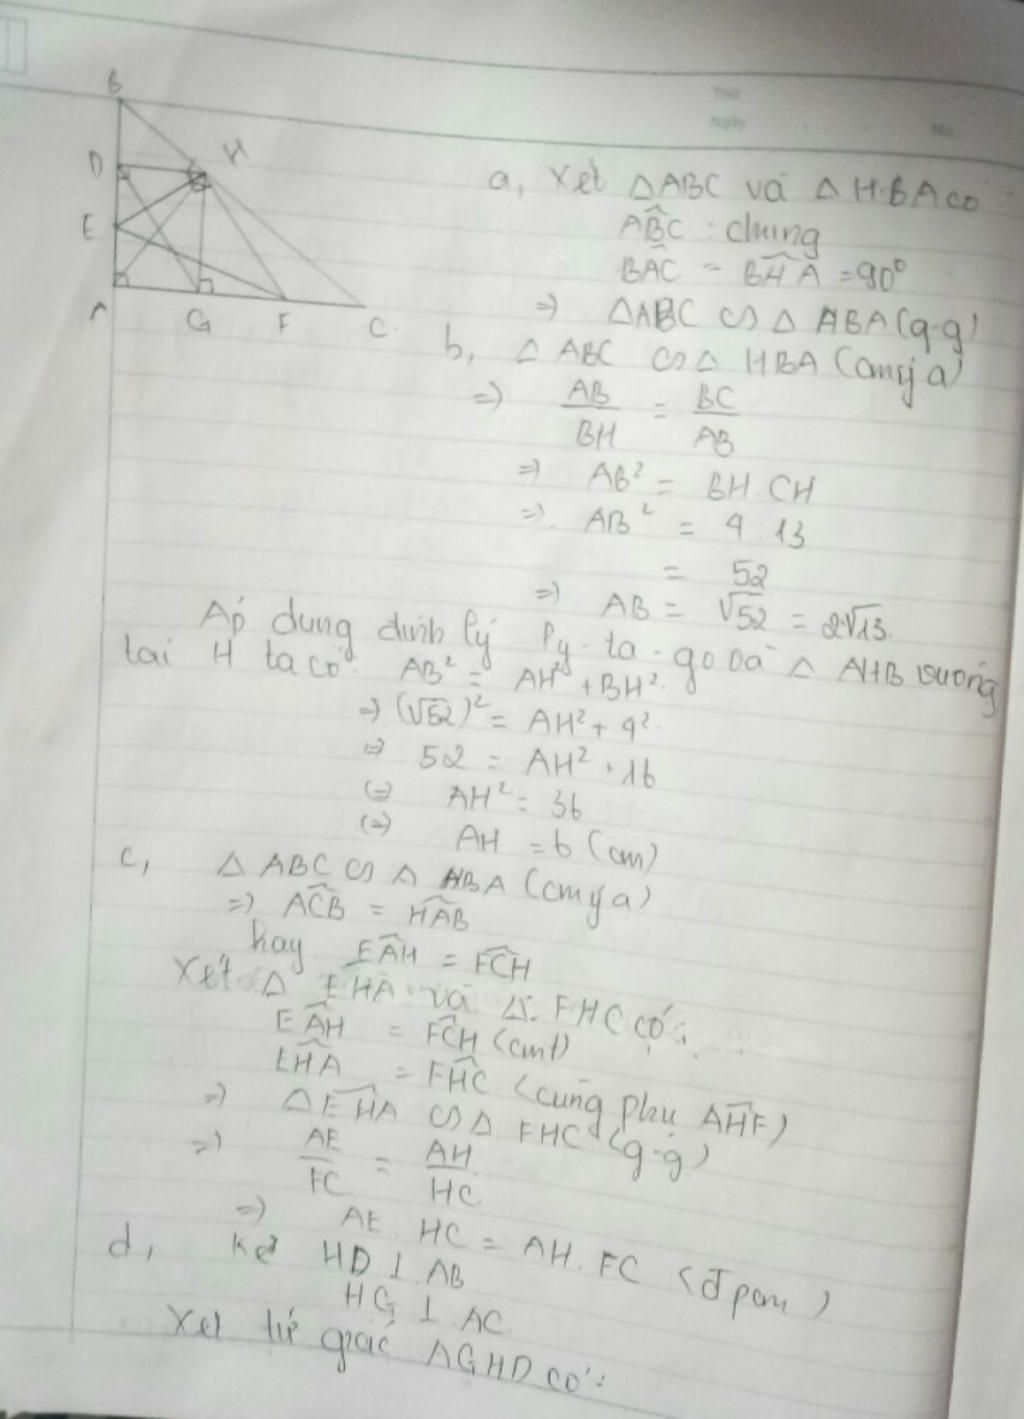 Thứ
Ngày
No.
B
D
H
E
A
G
F
C.
a, Xét △ABC và △HBA có:
ABC : chung
BAC = BHA = 90°
=> △ABC ∽ △HBA (g.g)
b, △ABC ∽ △HBA (cmý a)
=> AB/BH = BC/AB
=> AB² = BH.CH
=> AB² = 4.13
= 52
=> AB = √52 = 2√13.
Áp dụng định lý Py-ta-go △AHB vuông
tại H ta có: AB² = AH² + BH².
=> (√52)² = AH² + 4².
=> 52 = AH² + 16
(=) AH² = 36
(=) AH = 6 (cm)
c, △ABC ∽ △HBA (cmý a)
=> ACB = HAB
hay EAH = FCH
Xét △EHA và △FHC có:
EAH = FCH (cmt)
EHA = FHC (cùng phụ AHF)
=> △EHA ∽ △FHC (g.g)
=> AE/FC = AH/HC
=> AE.HC = AH.FC (đpcm)
d, Kẻ HD⊥AB
HG⊥AC
Xét tứ giác AGHD có: